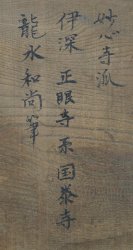 妙心寺派
伊深 正眼寺 系 国泰寺
龍水和尚筆